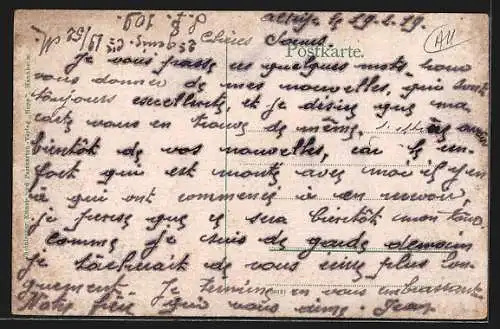 le 19.2.19
Chères Soeurs
Postkarte.
Je vous passe ces quelques mots pour
vous donner de mes nouvelles, qui sont
toujours excellentes, et je désire que ma
carte vous en trouve de même,
bientôt de vos nouvelles, car le ren-
fort qui est monté avec moi il y en
à qui ont commencé à en recevoir,
je pense que ce sera bientôt mon tour.
Comme je suis de garde demain
je tâcherait de vous écrire plus lon-
guement. Je termine en vous embrassant
Votre frère qui vous aime. Jean